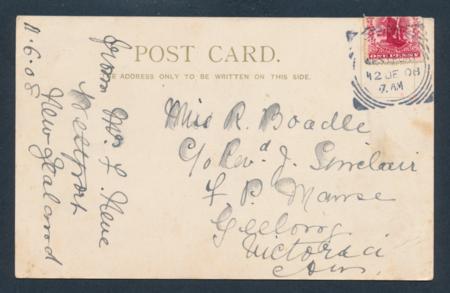 POST CARD.
THE ADDRESS ONLY TO BE WRITTEN ON THIS SIDE.
ONE PENNY
12 JE 08
7. AM
Miss R. Boadle
C/o Revd J. Sinclair
F P Manse
Geelong
Victoria
From Mr. L.
Westport
New Zealand
11.6.08